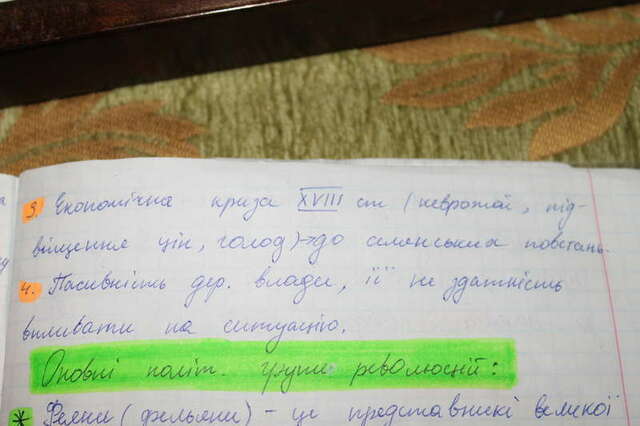 3. Економічна криза XVIII ст (неврожай, під-
вищення цін, голод)→до селянських повстань.
4. Пасивність дер. влади, її не здатність
впливати на ситуацію.
Основні політ. групи революцій:
* Феяни (фельяни) – це представникі великої